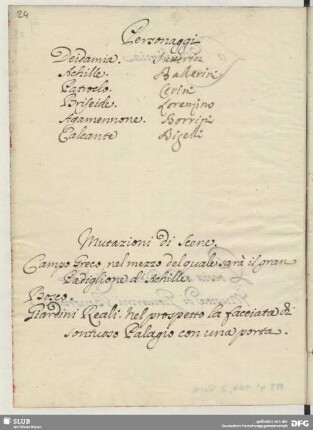 24
Personaggi
Deidamia.
Achille. Ballerin
Patroclo. Cerin
Briseide. Lorenzino
Agamennone. Borrin
Calcante Bigelli
Mutazioni di Scene.
Campo Greco nel mezzo del quale sarà il gran
Padiglione d'Achille.
Bosco.
Giardini Reali. nel prospetto la facciata di
sontuoso Palagio con una porta.
SLUB
Wir führen Wissen.
gefördert von der
Deutschen Forschungsgemeinschaft
DFG